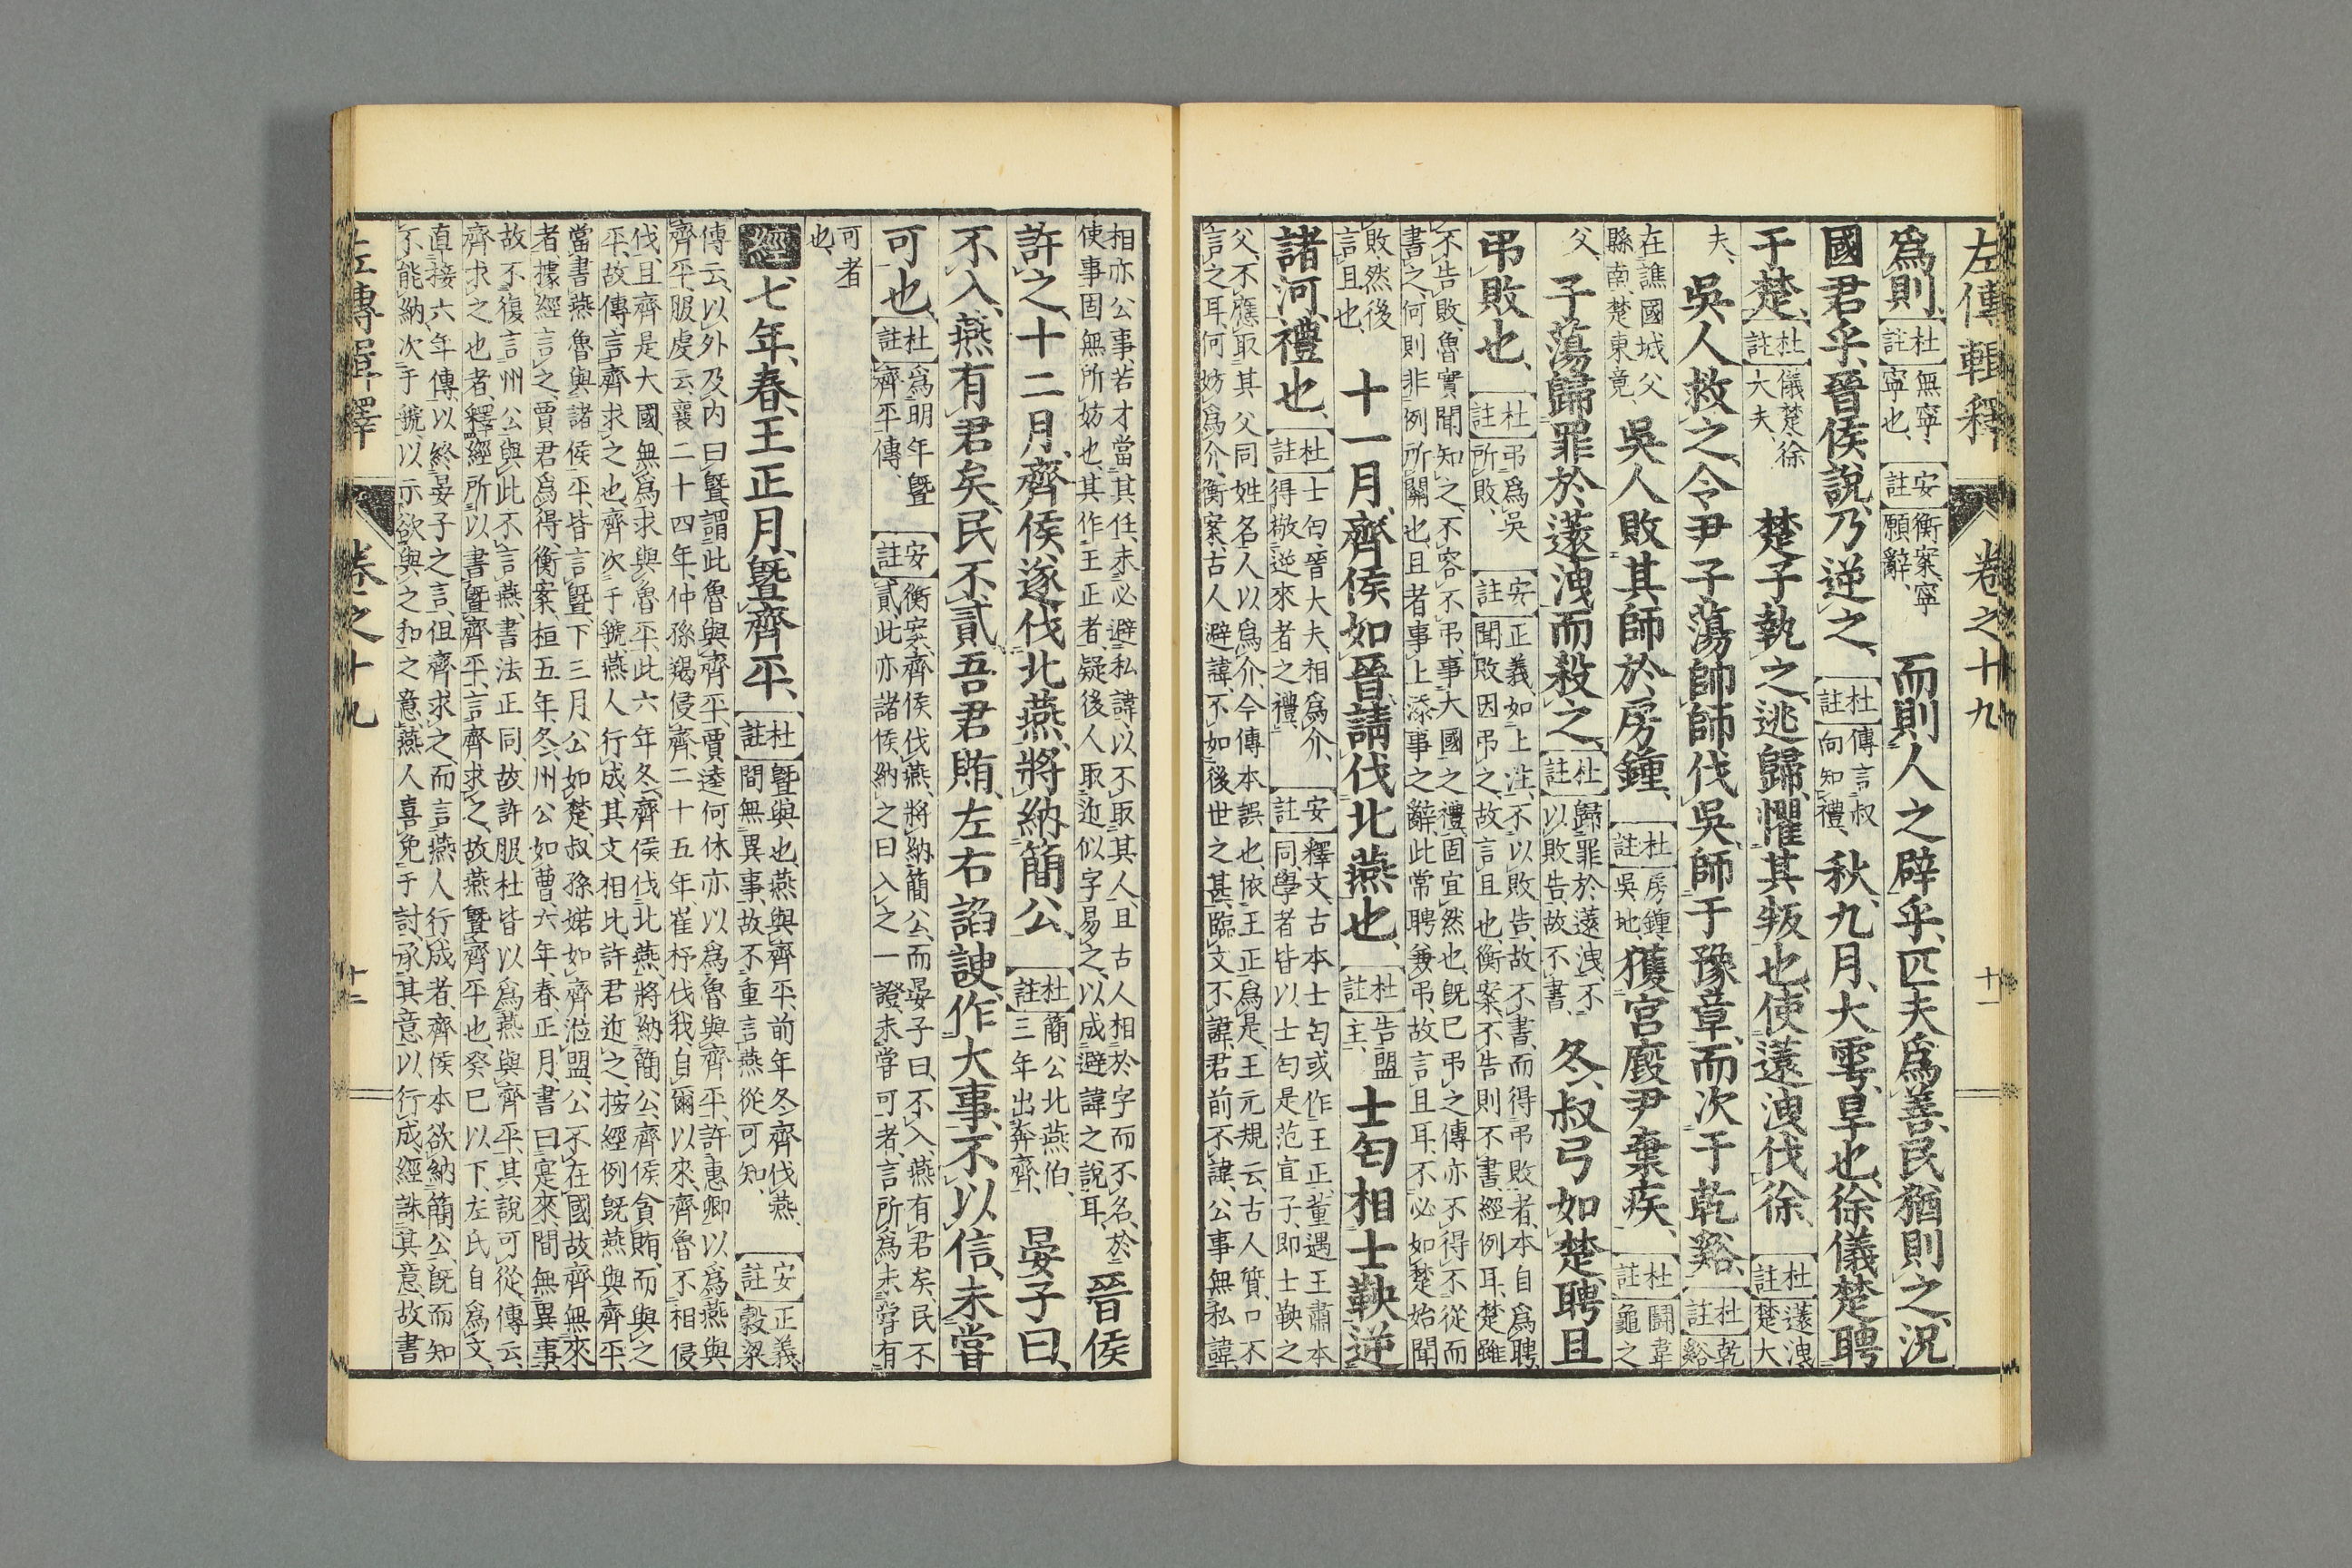 左傳輯釋 卷之十九 十一
爲則、杜註無寧、寧也、安註衡案、寧願辭、而則人之辟乎、匹夫爲善、民猶則之、況
國君乎、晉侯說、乃逆之、杜註傳言叔向知禮、秋、九月、大雩、旱也、徐儀楚聘
于楚、杜註儀楚、徐大夫、楚子執之、逃歸、懼其叛也、使薳洩伐徐、杜註薳洩、楚大
夫、吳人救之、令尹子蕩帥師伐吳、師于豫章、而次于乾谿、杜註乾谿
在譙國城父縣南、楚東竟、吳人敗其師於房鍾、杜註房鍾、吳地、獲宮廄尹棄疾、杜註鬪韋龜之
父、子蕩歸罪於薳洩而殺之、杜註歸罪於薳洩、不以敗告、故不書、冬、叔弓如楚聘、且
弔敗也、杜註弔爲吳所敗、安註正義、如上注、不以敗告、故不書、而得弔敗者、本自爲聘、聞敗因弔之、故言且也、衡案、不告則不書、經例耳、楚雖
不告敗、魯實聞知之、不容不弔、事大國之禮、固宜然也、既已弔之、傳亦不得不從而書之、何則非例所關也、且者事上添事之辭、此常聘兼弔、故言且耳、不必如楚始聞
敗、然後言且也、十一月、齊侯如晉、請伐北燕也、杜註告盟主、士匄相士鞅逆
諸河、禮也、杜註士匄、晉大夫、相爲介、得敬逆來者之禮、安註釋文、古本士匄或作王正、董遇王肅本同、學者皆以士匄是范宣子、卽士鞅之
父、不應取其父同姓名人以爲介、今傳本誤也、依王正爲是、王元規云、古人質、口不言之耳、何妨爲介、衡案、古人避諱、不如後世之甚、臨文不諱、君前不諱、公事無私諱、
相亦公事、若才當其任、未必避私諱以不取其人、且古人相於字而不名、於使事固無所妨也、其作王正者、疑後人取近似字易之、以成避諱之說耳、晉侯
許之、十二月、齊侯遂伐北燕、將納簡公、杜註簡公、北燕伯、三年出奔齊、晏子曰、
不入、燕有君矣、民不貳、吾君賄、左右諂諛、作大事不以信、未嘗
可也、杜註爲明年曁齊平傳、安註衡案、齊侯伐燕、將納簡公、而晏子曰、不入、燕有君矣、民不貳、此亦諸侯納之曰入之一證、未嘗可者、言所爲未嘗有
可者也、
經七年、春、王正月、曁齊平、杜註曁與也、燕與齊平、前年冬、齊伐燕、間無異事、故不重言燕、從可知、安註正義、穀梁
傳云、以外及內曰曁、謂此魯與齊平、賈逵何休亦以爲魯與齊平、許惠卿以爲燕與齊平、服虔云、襄二十四年、仲孫羯侵齊、二十五年、崔杼伐我、自爾以來、齊魯不相侵
伐、且齊是大國、無爲求與魯平、此六年冬、齊侯伐北燕、將納簡公、齊侯貪賄、而與之平、故傳言齊求之也、齊次于虢、燕人行成、其文相比、許君近之、按經例旣燕與齊平、
當書燕、魯與諸侯平、皆言曁、下三月、公如楚、叔孫婼如齊涖盟、公不在國、故齊無來者、據經言之、賈君爲得、衡案、桓五年、冬、州公如曹、六年、春、正月、書曰寔來、間無異事、
故不復言州公、與此不言燕、書法正同、故許服杜皆以爲燕與齊平、其說可從、傳云、齊求之也者、釋經所以書曁齊平、言齊求之、故燕曁齊平也、癸巳以下、左氏自爲文、
直接六年傳、以終晏子之言、但齊求之、而言燕人行成者、齊侯本欲納簡公、旣而知不能納、次于虢、以示欲與之和之意、燕人喜免于討、承其意以行成、經誅其意、故書
左傳輯釋 卷之十九 十二